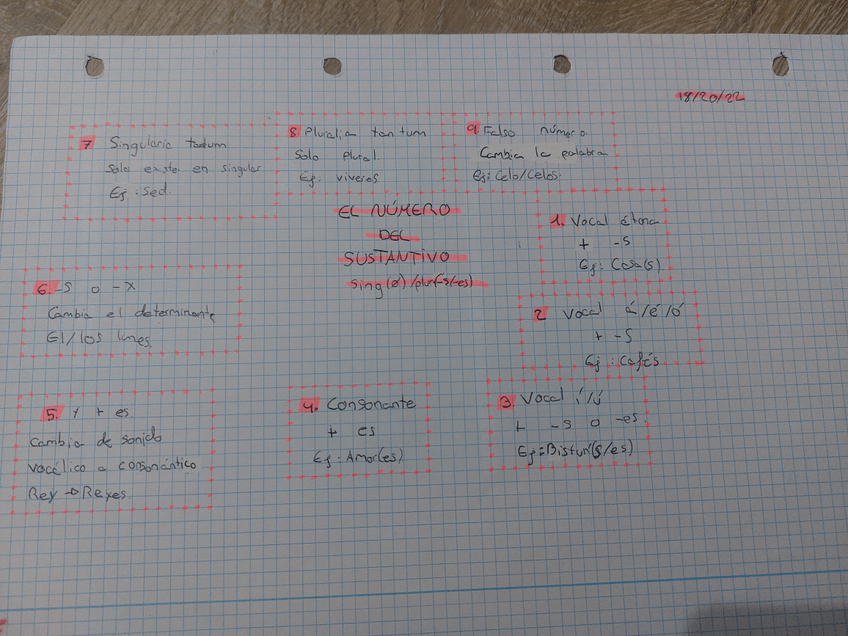 18/20/22
EL NÚMERO
DEL
SUSTANTIVO
sing(ø)/plur(-s/-es)
1. Vocal átona
+ -s
Ej: Cosa(s)
2 Vocal á/é/ó
+ -s
Ej: Cafés
3. Vocal í/ú
+ -s o -es.
Ej: Bisturí(s/es)
4. Consonante
+ es
Ej: Amor(es)
5. Y + es
Cambia de sonido
vocálico a consonántico
Rey → Reyes
6. -s o -x
Cambia el determinante
El/los lunes
7 Singularia tantum
Solo existe en singular
Ej: sed
8 Pluralia tantum
Solo plural.
Ej. víveres
9. Falso número
Cambia la palabra
Ej: Celo/Celos